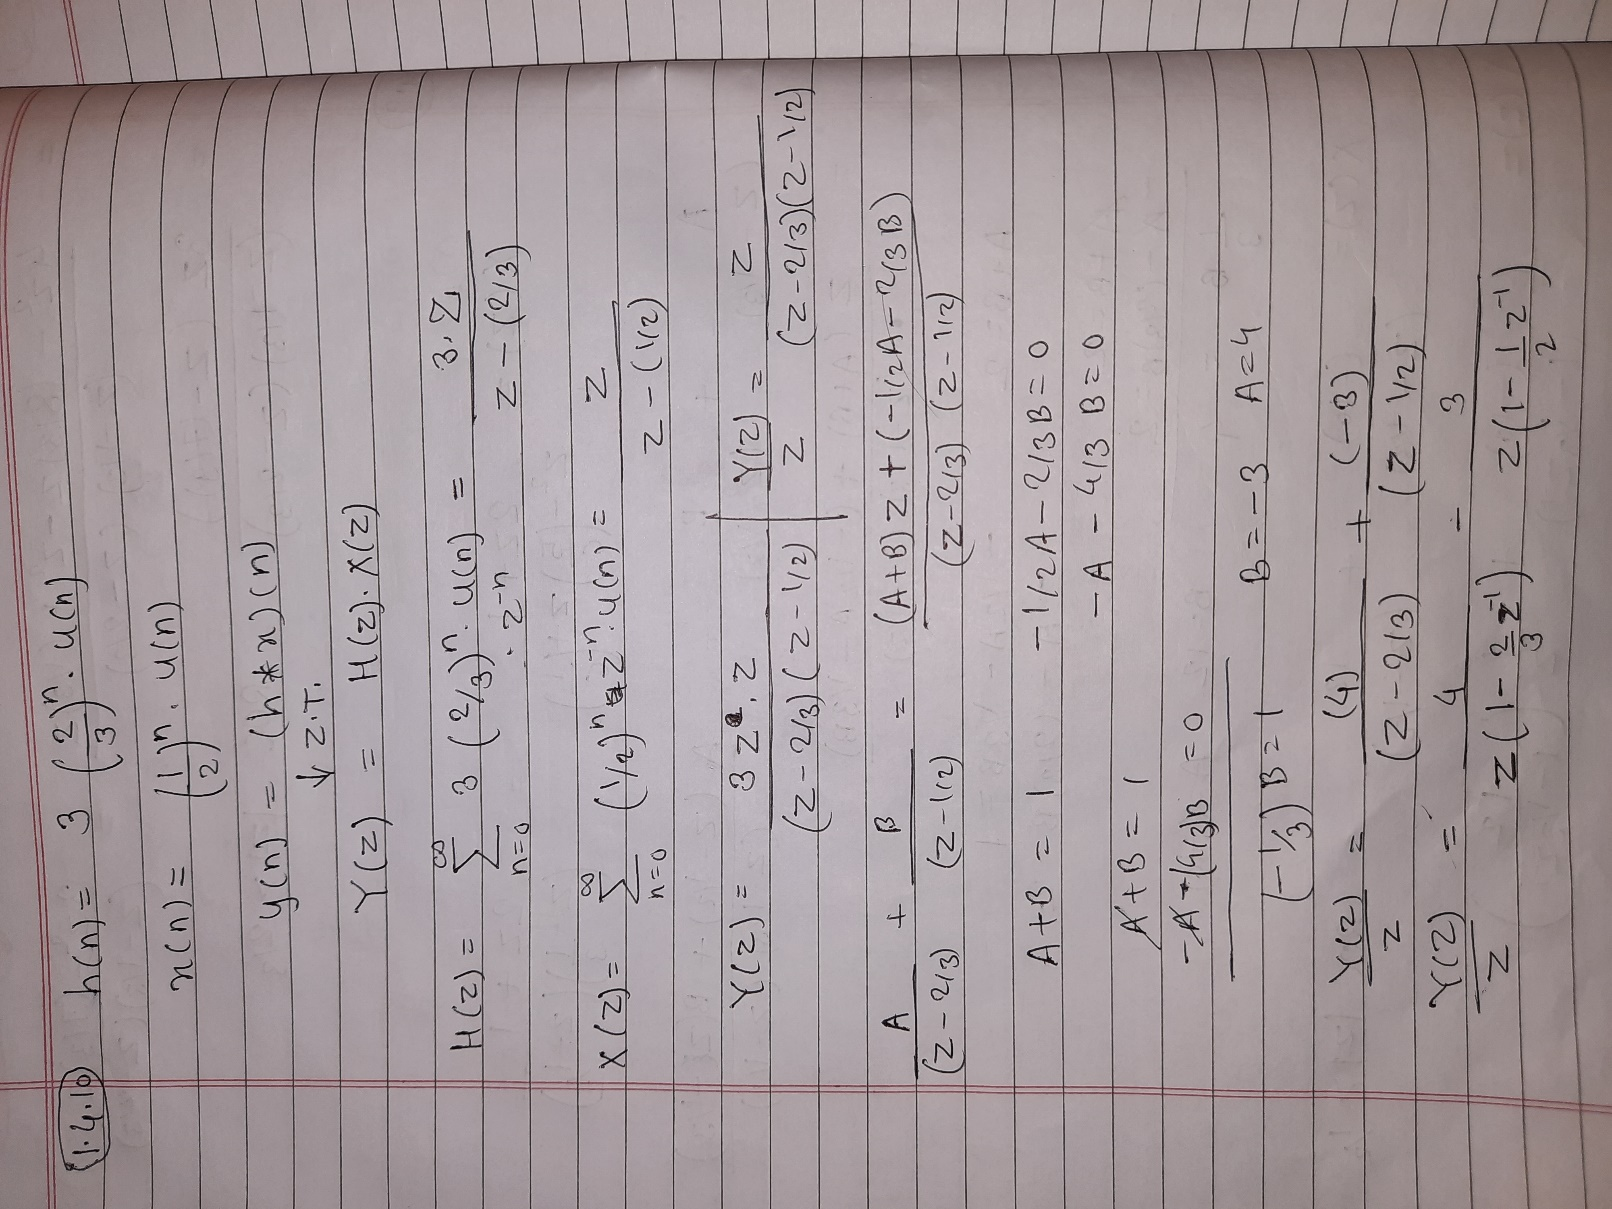 1.4.10 h(n) = 3 (2/3)^n . u(n)
x(n) = (1/2)^n . u(n)
y(n) = (h * x)(n)
↓ Z.T.
Y(z) = H(z) . X(z)
H(z) = ∑_{n=0}^{∞} 3 (2/3)^n . u(n) . z^{-n} = 3.z / (z - (2/3))
X(z) = ∑_{n=0}^{∞} (1/2)^n z^{-n} . u(n) = z / (z - (1/2))
Y(z) = 3 z . z / ((z - 2/3)(z - 1/2)) | Y(z)/z = z / ((z - 2/3)(z - 1/2))
A / (z - 2/3) + B / (z - 1/2) = ((A+B) z + (-1/2A - 2/3B)) / ((z - 2/3)(z - 1/2))
A+B = 1 -1/2A - 2/3B = 0
-A - 4/3 B = 0
A+B = 1
-A - (4/3)B = 0
(-1/3) B = 1 B = -3 A = 4
Y(z)/z = (4) / (z - 2/3) + (-3) / (z - 1/2)
Y(z)/z = 4 / (z(1 - 2/3 z^{-1})) - 3 / (z(1 - 1/2 z^{-1}))